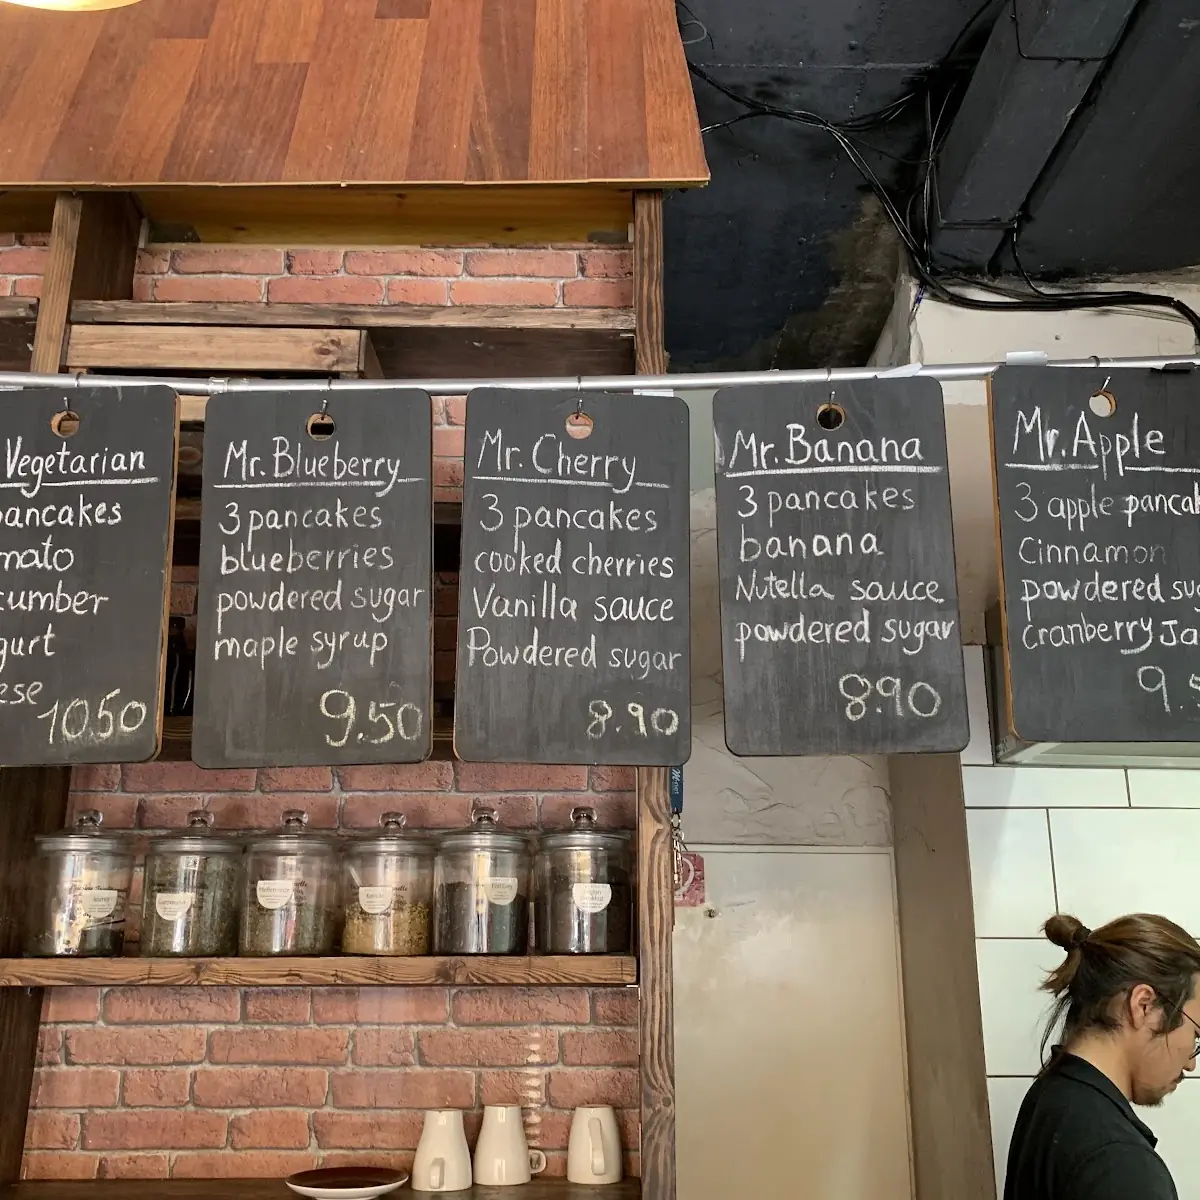 Vegetarian
pancakes
mato
cumber
gurt
ese
10.50
Mr. Blueberry
3 pancakes
blueberries
powdered sugar
maple syrup
9.50
Mr. Cherry
3 pancakes
cooked cherries
Vanilla sauce
Powdered sugar
8.90
Mr. Banana
3 pancakes
banana
Nutella sauce
powdered sugar
8.90
Mr. Apple
3 apple pancak
Cinnamon
powdered sug
cranberry Ja
9.5